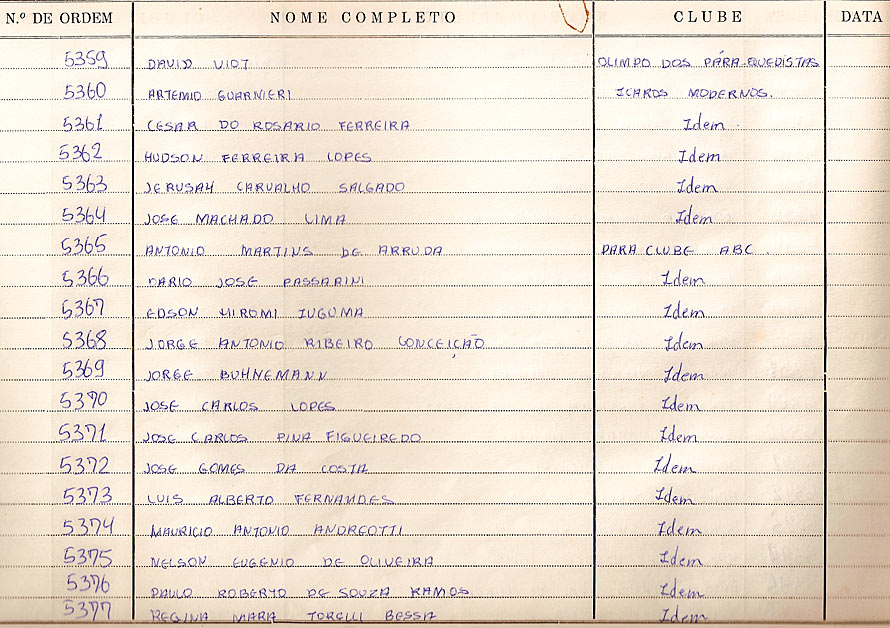 N.º DE ORDEM NOME COMPLETO CLUBE DATA
5359 DAVID VIOT OLIMPO DOS PÁRA-QUEDISTAS
5360 ARTEMIO GUARNIERI ICAROS MODERNOS.
5361 CESAR DO ROSARIO FERREIRA Idem
5362 HUDSON FERREIRA LOPES Idem
5363 JERUSAH CARVALHO SALGADO Idem
5364 JOSE MACHADO LIMA Idem
5365 ANTONIO MARTINS DE ARRUDA PARA CLUBE ABC
5366 DARIO JOSE PASSARINI Idem
5367 EDSON HIROMI IUGUMA Idem
5368 JORGE ANTONIO RIBEIRO CONCEIÇÃO Idem
5369 JORGE BUHNEMANN Idem
5370 JOSE CARLOS LOPES Idem
5371 JOSE CARLOS PINA FIGUEIREDO Idem
5372 JOSE GOMES DA COSTA Idem
5373 LUIS ALBERTO FERNANDES Idem
5374 MAURICIO ANTONIO ANDREOTTI Idem
5375 NELSON EUGENIO DE OLIVEIRA Idem
5376 PAULO ROBERTO DE SOUZA RAMOS Idem
5377 REGINA MARA TORELLI BESSA Idem